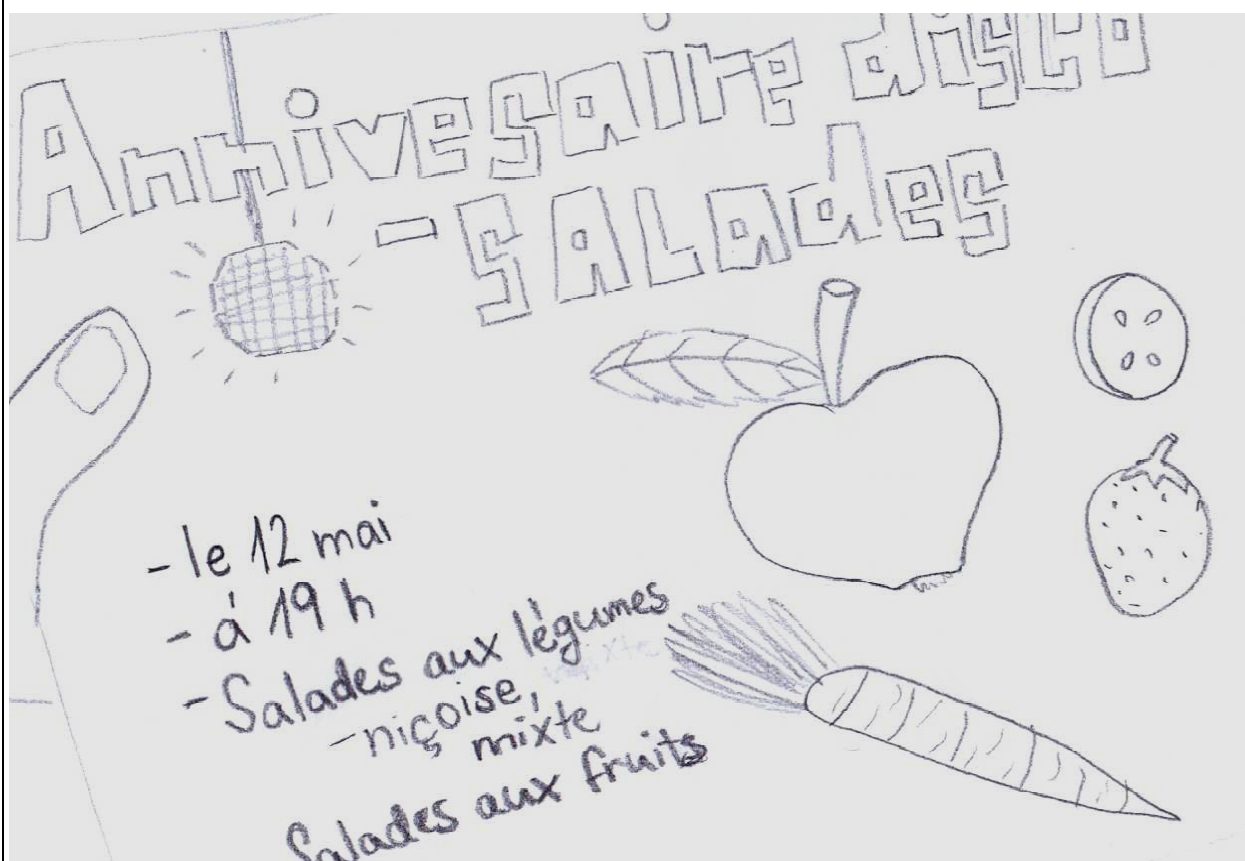 Annivesaire disco
-SALades
-le 12 mai
-á 19 h
-Salades aux légumes
-niçoise,
mixte
Salades aux fruits